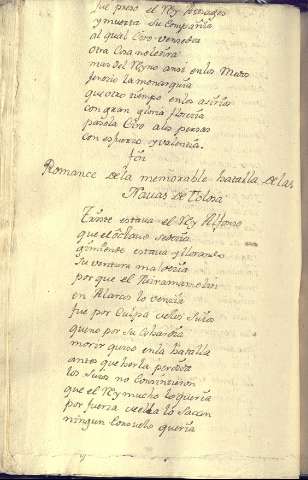 fue preso el Rey
y muerta su Compañia
al qual Ciro vencedor
otra Cosa
mas del Reyno ansi en los Medos
la monarquia
que otro tiempo en los asirios
con gran gloria floreçia
pasola Ciro a los persas
con esfuerzo y valentia.
fin
Romance de la memorable batalla de las
Nauas de Tolosa
Triste estaua el Rey Alfonso
que el octauo se deçia
gimiendo estaua y llorando
su ventura maldeçia
por que el Miramamolin
en Alarcos lo vencia
fue por Culpa de los suios
que no por su Cobardia
morir quiso en la batalla
antes que verla perdida
los suios no Consintieron
que el Rey mucho lo queria
por fuerza de ella lo sacan
ningun Consuelo queria